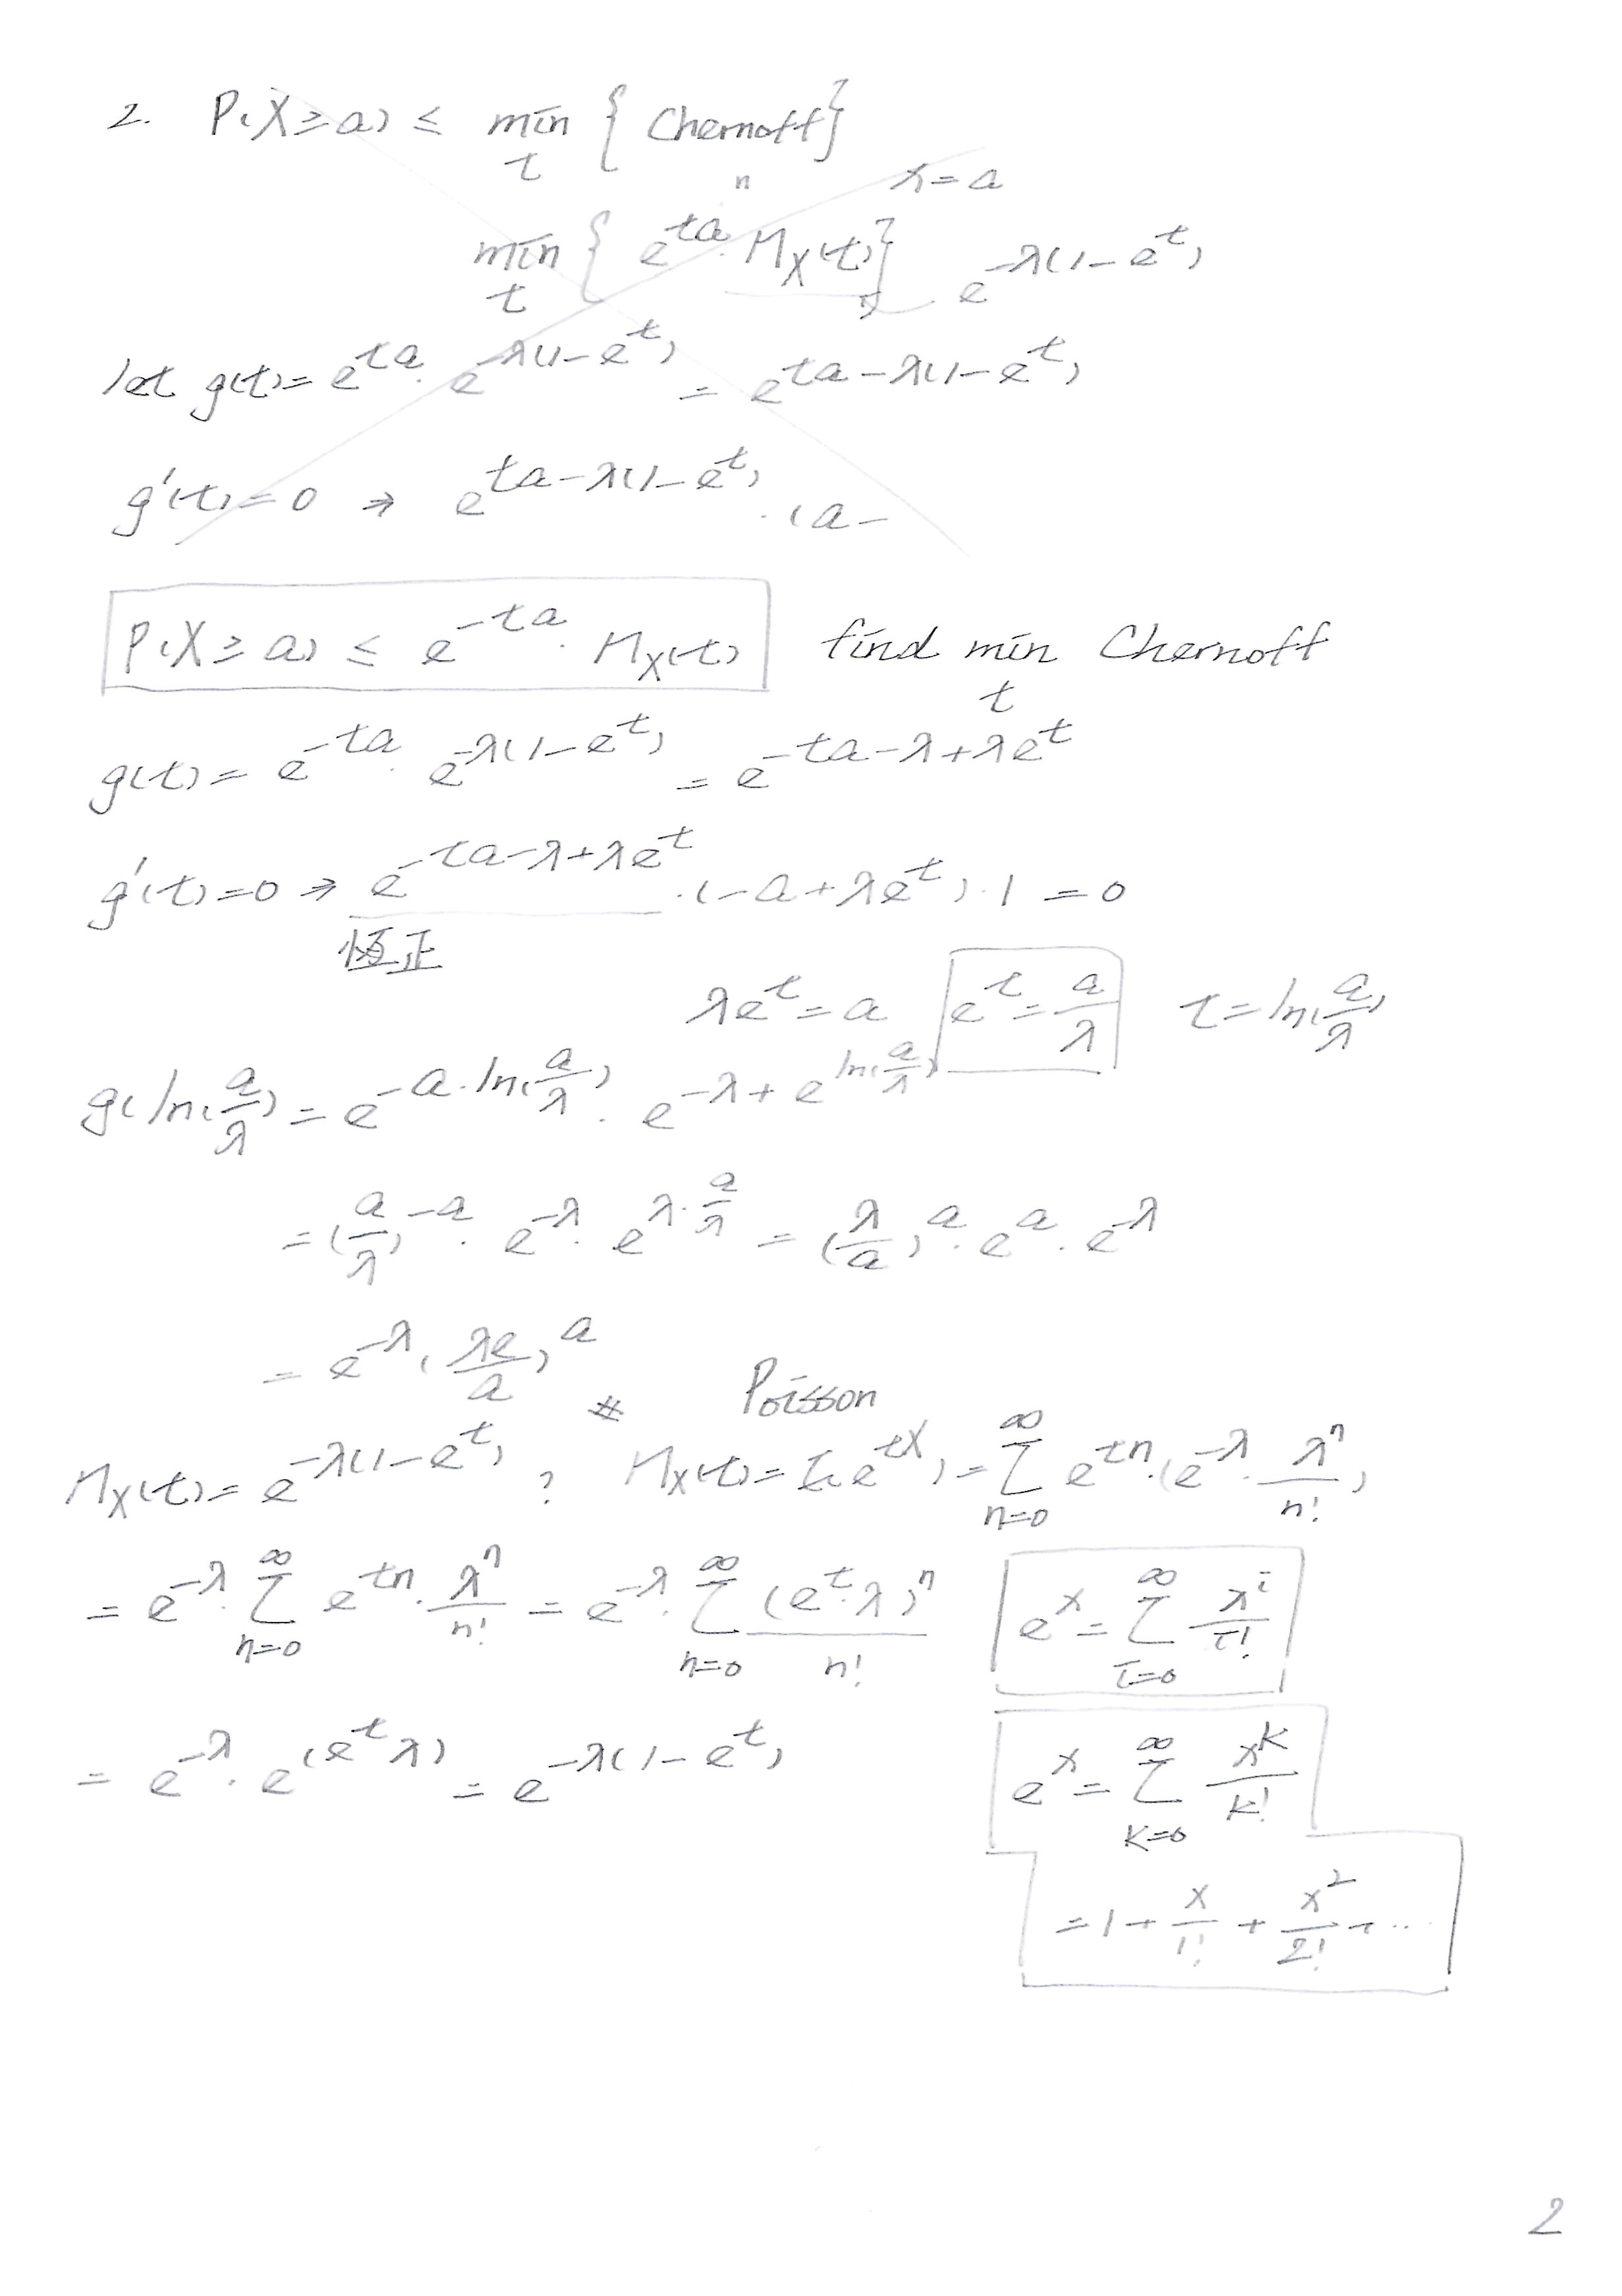 2. P(X ≥ a) ≤ min_t { Chernoff }
n λ = a
min_t { e^{ta} · M_X(t) } e^{-λ(1-e^t)}
let g(t) = e^{ta} · e^{-λ(1-e^t)} = e^{ta-λ(1-e^t)}
g'(t) = 0 ⇒ e^{ta-λ(1-e^t)} · (a-
P(X ≥ a) ≤ e^{-ta} · M_X(t) find min_t Chernoff
g(t) = e^{-ta} · e^{-λ(1-e^t)} = e^{-ta-λ+λe^t}
g'(t) = 0 ⇒ e^{-ta-λ+λe^t} · (-a+λe^t) · 1 = 0
恆正
λe^t = a e^t = a/λ t = ln(a/λ)
g(ln(a/λ)) = e^{-a·ln(a/λ)} · e^{-λ+e^{ln(a/λ)}}
= (a/λ)^{-a} · e^{-λ} · e^{λ·a/λ} = (λ/a)^a · e^a · e^{-λ}
= e^{-λ} (λe/a)^a #
Poisson
M_X(t) = e^{-λ(1-e^t)} ? M_X(t) = E(e^{tX}) = Σ_{n=0}^{∞} e^{tn} · (e^{-λ} · λ^n/n!)
= e^{-λ} · Σ_{n=0}^{∞} e^{tn} · λ^n/n! = e^{-λ} · Σ_{n=0}^{∞} (e^t·λ)^n/n!
e^x = Σ_{i=0}^{∞} x^i/i!
= e^{-λ} · e^{(e^t λ)} = e^{-λ(1-e^t)}
e^x = Σ_{k=0}^{∞} x^k/k!
= 1 + x/1! + x^2/2! + ...
2